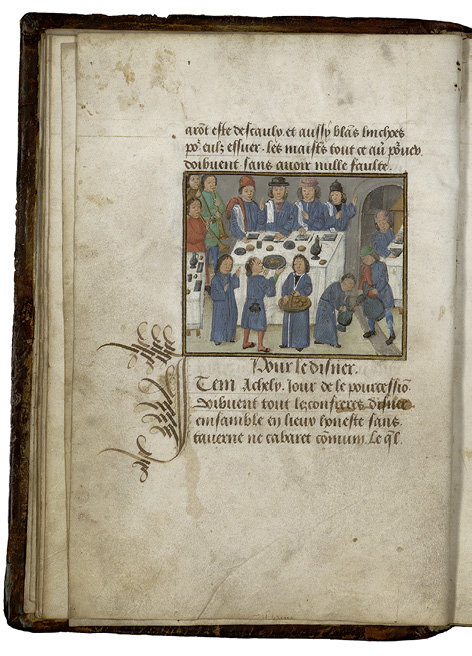 arōt este descauly et aussy blās linchoes
po' eulz essuer. les maist's tout ce au
doibuent sans auoir nulle faulte.
Pour le disner.
Tem Achely. Jour de le pourcessiō
doibuent tout les confreres disner
emsamble en lieux honeste sans
tauerne ne cabaret cōmum. Le q̄l